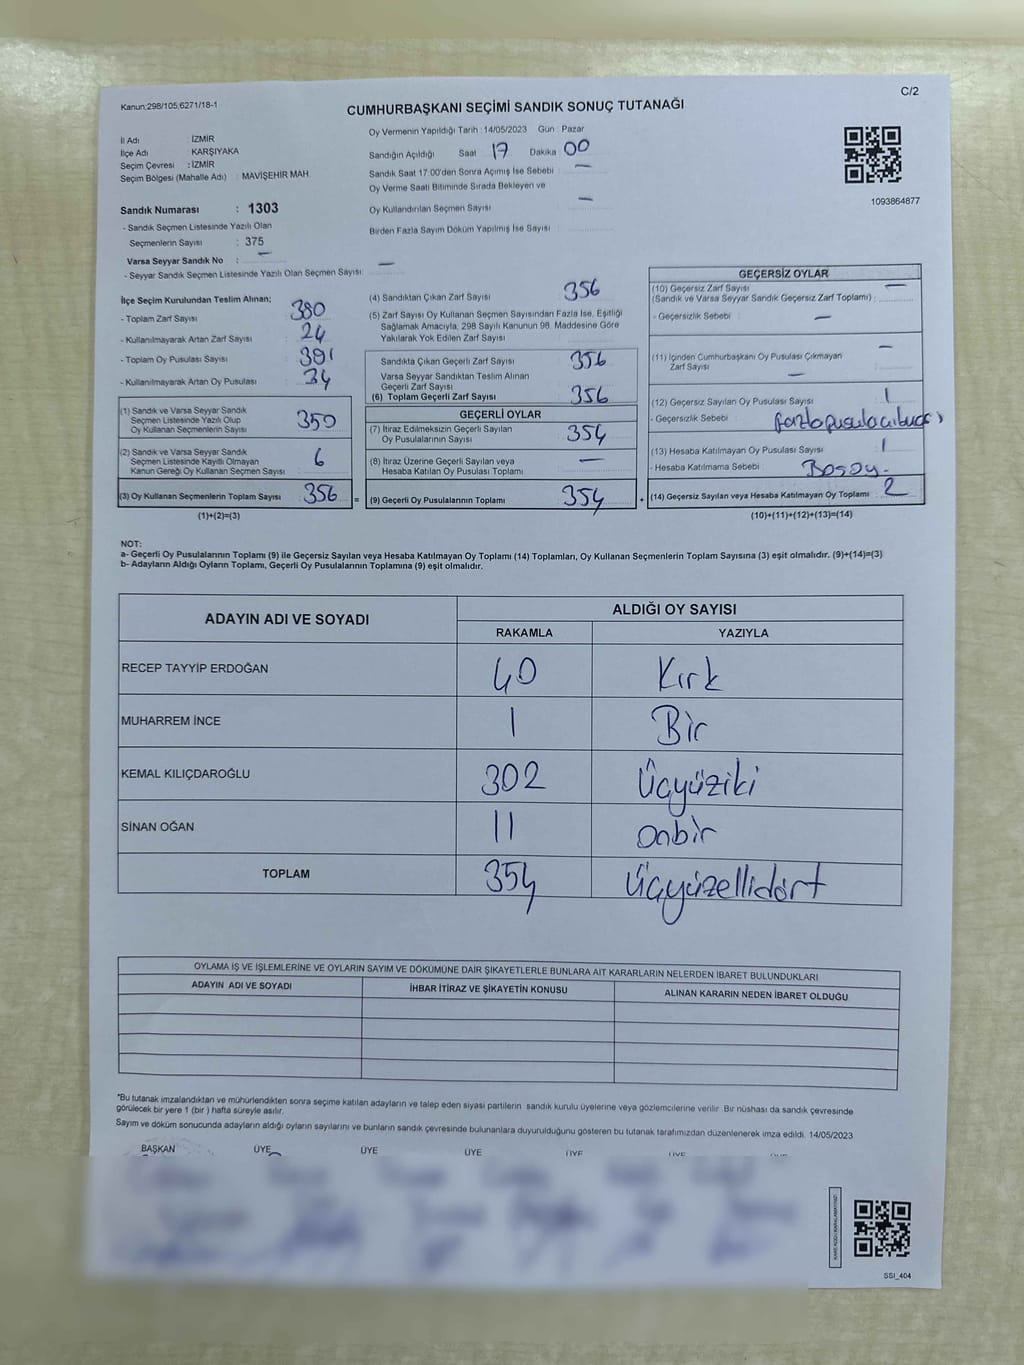 Kanun:298/105;6271/18-1
C/2
CUMHURBAŞKANI SEÇİMİ SANDIK SONUÇ TUTANAĞI
İl Adı : İZMİR
İlçe Adı : KARŞIYAKA
Seçim Çevresi : İZMİR
Seçim Bölgesi (Mahalle Adı) : MAVİŞEHİR MAH.
Sandık Numarası : 1303
- Sandık Seçmen Listesinde Yazılı Olan
Seçmenlerin Sayısı : 375
Varsa Seyyar Sandık No : —
- Seyyar Sandık Seçmen Listesinde Yazılı Olan Seçmen Sayısı: —
Oy Vermenin Yapıldığı Tarih : 14/05/2023 Gün : Pazar
Sandığın Açıldığı Saat 17 Dakika 00
Sandık Saat 17:00'den Sonra Açılmış İse Sebebi : —
Oy Verme Saati Bitiminde Sırada Bekleyen ve
Oy Kullandırılan Seçmen Sayısı : —
Birden Fazla Sayım Döküm Yapılmış İse Sayısı :
1093864877
İlçe Seçim Kurulundan Teslim Alınan;
- Toplam Zarf Sayısı : 380
- Kullanılmayarak Artan Zarf Sayısı : 24
- Toplam Oy Pusulası Sayısı : 391
- Kullanılmayarak Artan Oy Pusulası : 34
(1) Sandık ve Varsa Seyyar Sandık
Seçmen Listesinde Yazılı Olup
Oy Kullanan Seçmenlerin Sayısı : 350
(2) Sandık ve Varsa Seyyar Sandık
Seçmen Listesinde Kayıtlı Olmayan
Kanun Gereği Oy Kullanan Seçmen Sayısı : 6
(3) Oy Kullanan Seçmenlerin Toplam Sayısı : 356 =
(1)+(2)=(3)
(4) Sandıktan Çıkan Zarf Sayısı : 356
(5) Zarf Sayısı Oy Kullanan Seçmen Sayısından Fazla İse, Eşitliği
Sağlamak Amacıyla; 298 Sayılı Kanunun 98. Maddesine Göre
Yakılarak Yok Edilen Zarf Sayısı :
Sandıkta Çıkan Geçerli Zarf Sayısı : 356
Varsa Seyyar Sandıktan Teslim Alınan
Geçerli Zarf Sayısı :
(6) Toplam Geçerli Zarf Sayısı : 356
GEÇERLİ OYLAR
(7) İtiraz Edilmeksizin Geçerli Sayılan
Oy Pusulalarının Sayısı : 354
(8) İtiraz Üzerine Geçerli Sayılan veya
Hesaba Katılan Oy Pusulası Toplamı : —
(9) Geçerli Oy Pusulalarının Toplamı : 354 +
GEÇERSİZ OYLAR
(10) Geçersiz Zarf Sayısı —
(Sandık ve Varsa Seyyar Sandık Geçersiz Zarf Toplamı) :
- Geçersizlik Sebebi : —
(11) İçinden Cumhurbaşkanı Oy Pusulası Çıkmayan —
Zarf Sayısı : —
(12) Geçersiz Sayılan Oy Pusulası Sayısı : 1
- Geçersizlik Sebebi :
(13) Hesaba Katılmayan Oy Pusulası Sayısı : 1
- Hesaba Katılmama Sebebi : Boş oy.
(14) Geçersiz Sayılan veya Hesaba Katılmayan Oy Toplamı : 2
(10)+(11)+(12)+(13)=(14)
NOT:
a- Geçerli Oy Pusulalarının Toplamı (9) ile Geçersiz Sayılan veya Hesaba Katılmayan Oy Toplamı (14) Toplamları, Oy Kullanan Seçmenlerin Toplam Sayısına (3) eşit olmalıdır. (9)+(14)=(3)
b- Adayların Aldığı Oyların Toplamı, Geçerli Oy Pusulalarının Toplamına (9) eşit olmalıdır.
ADAYIN ADI VE SOYADI
ALDIĞI OY SAYISI
RAKAMLA YAZIYLA
RECEP TAYYİP ERDOĞAN 40 Kırk
MUHARREM İNCE 1 Bir
KEMAL KILIÇDAROĞLU 302 Üçyüziki
SİNAN OĞAN 11 Onbir
TOPLAM 354 Üçyüzellidört
OYLAMA İŞ VE İŞLEMLERİNE VE OYLARIN SAYIM VE DÖKÜMÜNE DAİR ŞİKAYETLERLE BUNLARA AİT KARARLARIN NELERDEN İBARET BULUNDUKLARI
ADAYIN ADI VE SOYADI İHBAR İTİRAZ VE ŞİKAYETİN KONUSU ALINAN KARARIN NEDEN İBARET OLDUĞU
*Bu tutanak imzalandıktan ve mühürlendikten sonra seçime katılan adayların ve talep eden siyasi partilerin sandık kurulu üyelerine veya gözlemcilerine verilir. Bir nüshası da sandık çevresinde
görülecek bir yere 1 (bir ) hafta süreyle asılır.
Sayım ve döküm sonucunda adayların aldığı oyların sayılarını ve bunların sandık çevresinde bulunanlara duyurulduğunu gösteren bu tutanak tarafımızdan düzenlenerek imza edildi. 14/05/2023
BAŞKAN ÜYE ÜYE ÜYE ÜYE ÜYE
SSI_404